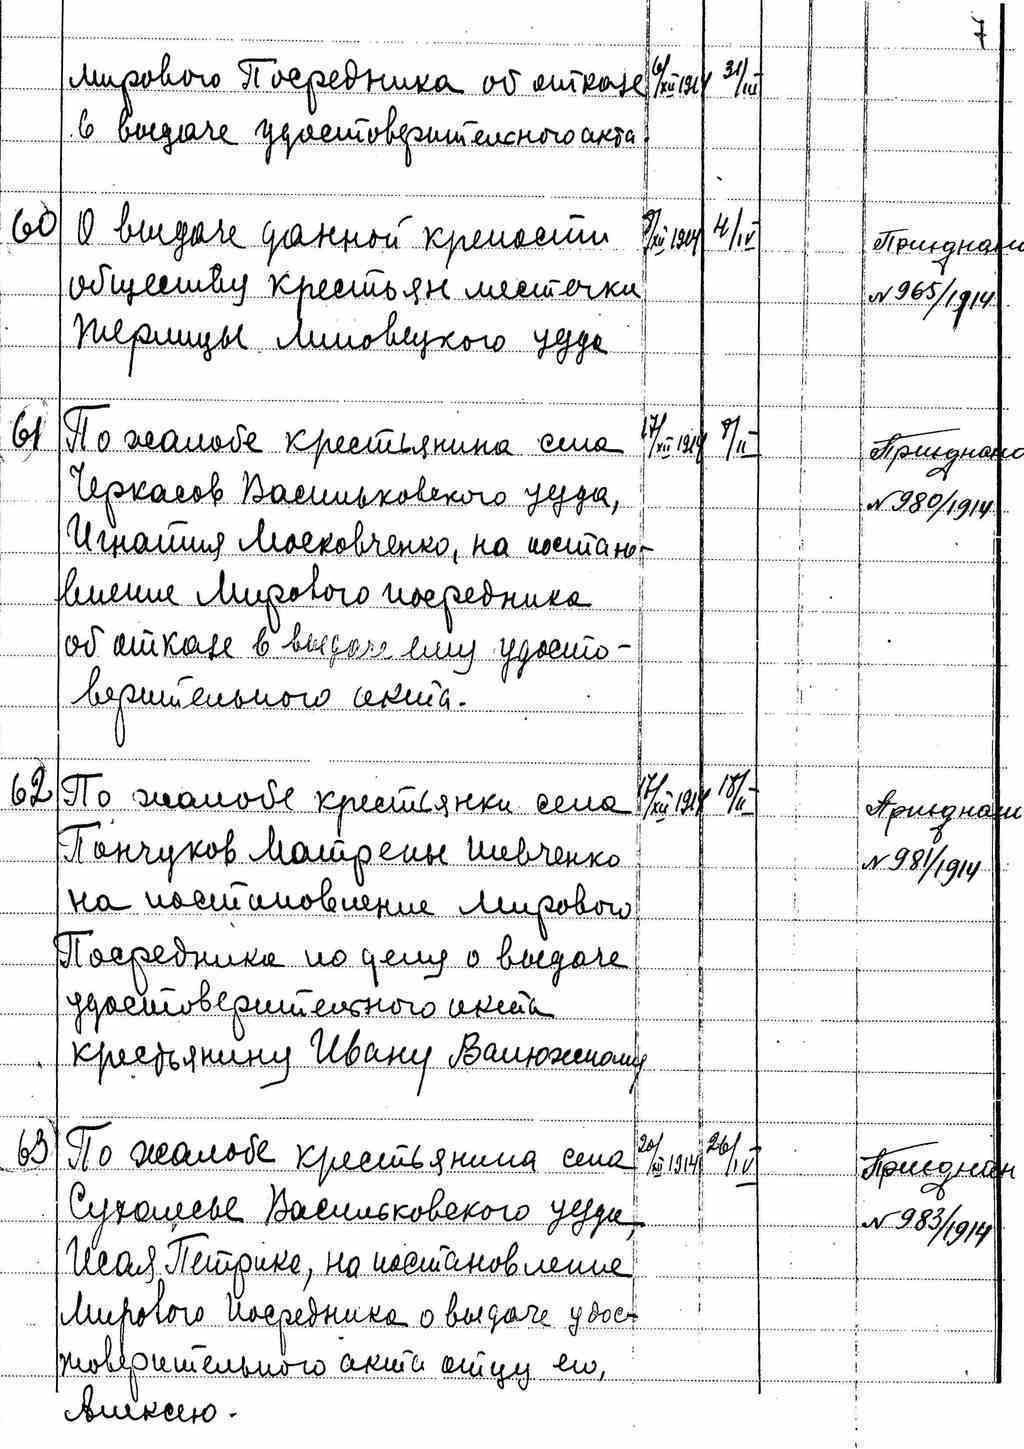 7
Мирового Посредника об отказе 6/XII 1914 31/III
в выдаче удостоверительного акта.
60 О выдаче данной крепости 9/XII 1914 4/IV
обществу крестьян местечка
Жерлицы Липовецкого уезда
Приєднано
№ 965/1914
61 По жалобе крестьянина села 17/XII 1914 9/II
Черкасов Васильковского уезда,
Игнатия Московченко, на постано-
вление Мирового посредника
об отказе в выдаче ему удосто-
верительного акта.
Приєднано
№ 980/1914
62 По жалобе крестьянки села 17/XII 1914 18/II
Пончуков Матрены Шевченко
на постановление Мирового
Посредника по делу о выдаче
удостоверительного акта
крестьянину Ивану Валюжскому
Приєднано
№ 981/1914
63 По жалобе крестьянина села 20/XII 1914 26/IV
Сухолесье Васильковского уезда,
Исая Петрика, на постановление
Мирового посредника о выдаче удос-
товерительного акта отцу его,
Алексею.
Приєднан
№ 983/1914